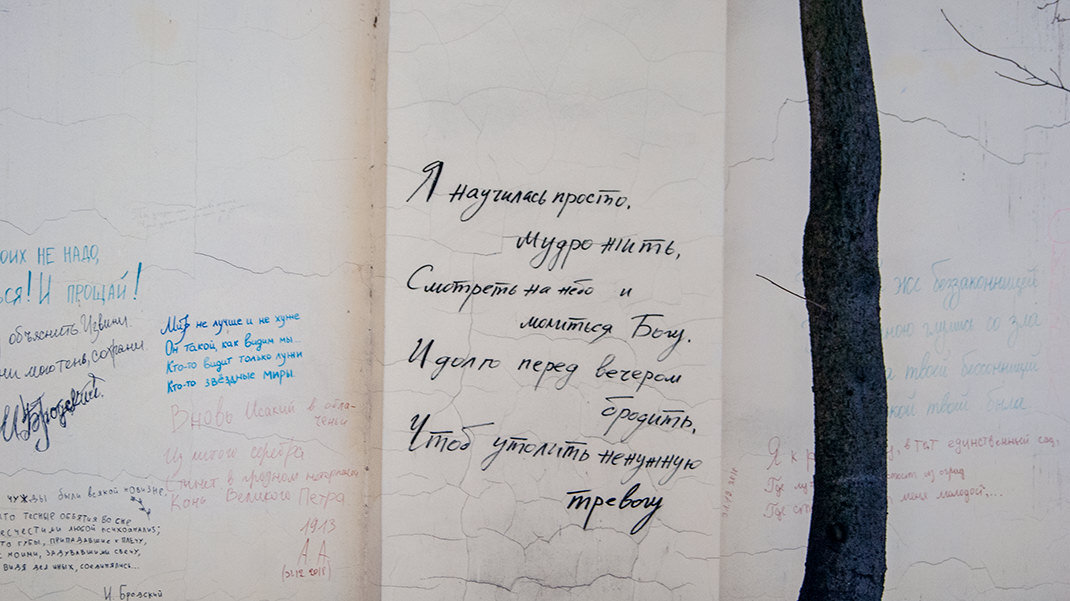 ОИХ НЕ НАДО,
ЬСЯ! И ПРОЩАЙ!
объяснить. Извини.
ни мою тень, сохрани.
И. Бродский.
Мир не лучше и не хуже
Он такой, как видим мы...
Кто-то видит только лужи
Кто-то звёздные миры.
Вновь Исакий в обла-
ченьи
Из литого серебра
Стынет в грозном нетерпеньи
Конь Великого Петра
1913
А.А
(31.12 2018)
ЧУЖДЫ БЫЛИ ВСЯКОЙ НОВИЗНЕ,
ТО ТЕСНЫЕ ОБЪЯТИЯ ВО СНЕ
БЕСЧЕСТИЛИ ЛЮБОЙ ПСИХОАНАЛИЗ;
ТО ГУБЫ, ПРИПАДАВШИЕ К ПЛЕЧУ,
С МОИМИ, ЗАДУВАВШИМИ СВЕЧУ,
ВИДЯ ДЕЛ ИНЫХ, СОЕДИНЯЛИСЬ...
И. Бродский
Я научилась просто,
мудро жить,
Смотреть на небо и
молиться Богу,
И долго перед вечером
бродить,
Чтоб утолить ненужную
тревогу
же беззаконницей
мною глядишь со зла
а твоей бессонницей
кой твоей была
Я к р у, в тот единственный сад,
Где лу из оград
Где ст меня молодой,...